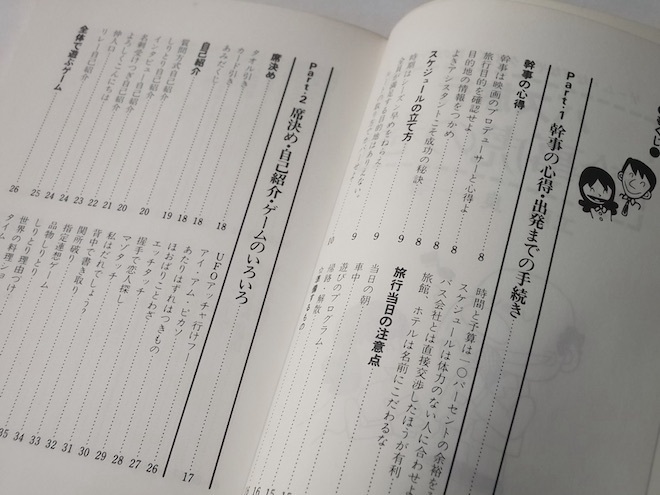 くじ●
Part・1 幹事の心得・出発までの手続き
幹事の心得
幹事は映画のプロデューサーと心得よ 8
旅行目的を確認せよ 8
目的地の情報をつかめ 8
よきアシスタントこそ成功の秘訣 8
スケジュールの立て方 9
時期は
9
10
時間と予算は一〇パーセントの余裕を
スケジュールは体力のない人に合わせよ
バス会社とは直接交渉したほうが有利
旅館、ホテルは名前にこだわるな
旅行当日の注意点
当日の朝 15
車中 15
遊びのプログラム 16
帰路・解散
Part・2 席決め・自己紹介・ゲームのいろいろ 17
席決め 18
タオル引き
あみだくじ
自己紹介 18
質問方式自己紹介 18
しりとり自己紹介 19
インタビュー自己紹介 20
名刺受けつぎ自己紹介 20
よろしくつぎ自己紹介 22
仲人口こんにちは 23
リレー自己紹介 24
全体で遊ぶゲーム 24
25
26
UFOアッチャ行けフ
アイ・アム・ピカソ
あたりはずれはつきもの
ほおばりことわざ 26
エッチタッチ 27
握手で恋人探し 28
マゾタッチ 29
私はだれでしょう 29
背中で書き取り 30
関所破り 31
指定連想ゲーム 32
品物しりとり 33
しりとり
世界の料理由つけ 34
タイム 35